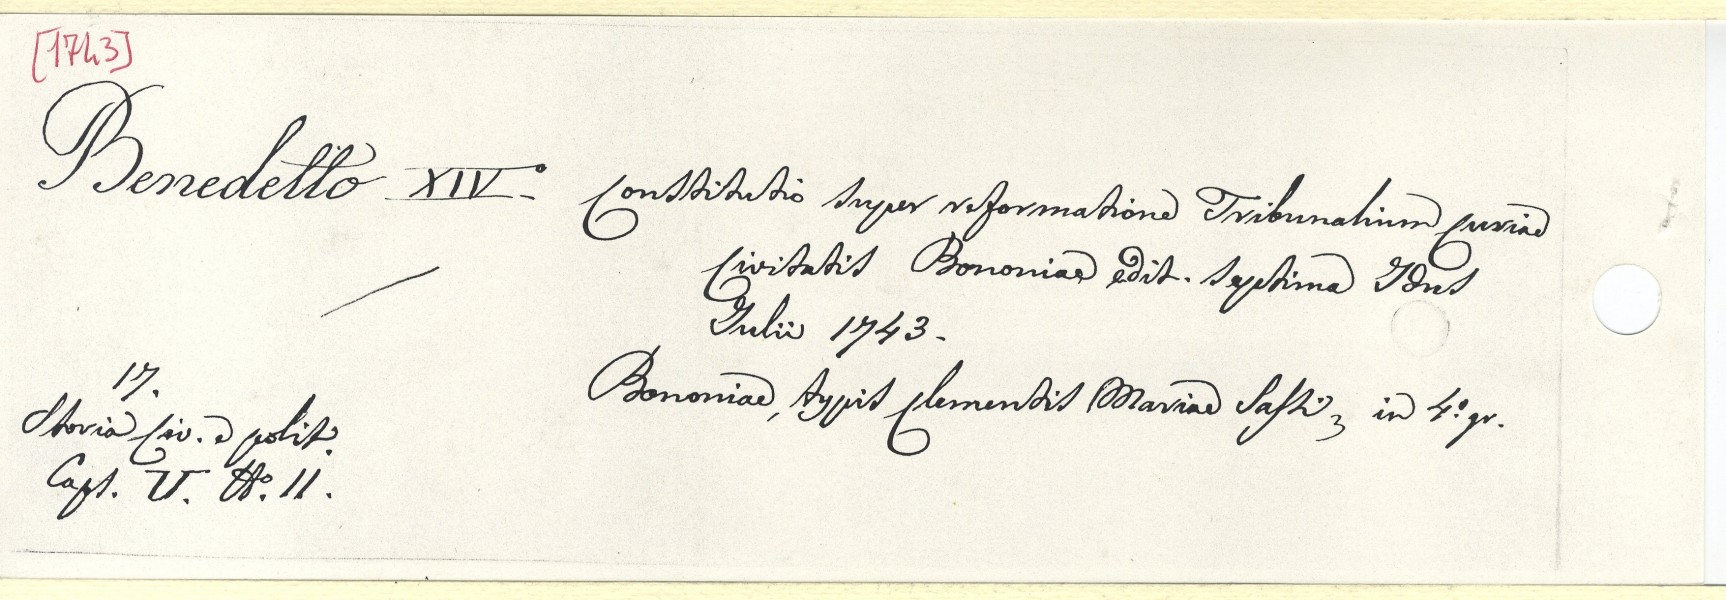 [1743]
Benedetto XIV.°
Constitutio super reformatione Tribunalium Curiae
Civitatis Bononiae edit. septima Idus
Julii 1743.
Bononiae, typis Clementis Mariae Sassi, in 4.° gr.
17.
Storia Civ. e polit.
Cart. V. N.° 11.